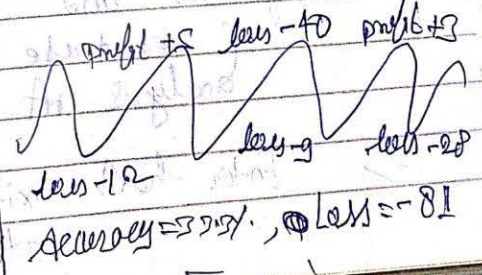 profit +5 loss -40 profit +3
loss -9 loss -28
loss -12
Accuracy=33.3%, Loss=-81